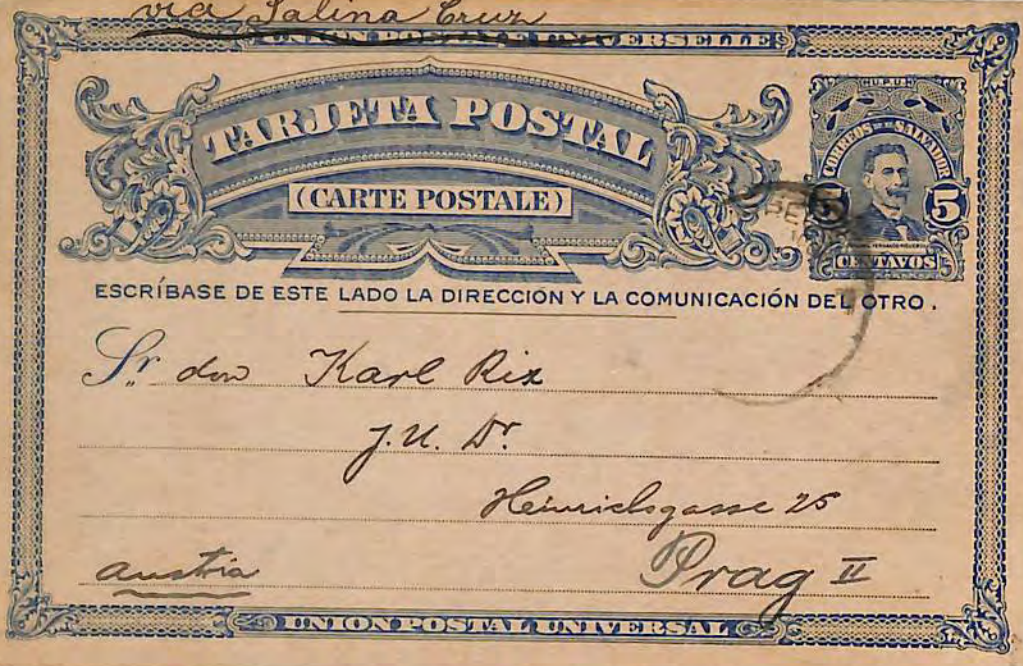 via Salina Cruz
UNION POSTALE UNIVERSELLE
TARJETA POSTAL
(CARTE POSTALE)
U.P.U.
CORREOS DE EL SALVADOR
5 5
CENTAVOS
ESCRÍBASE DE ESTE LADO LA DIRECCION Y LA COMUNICACIÓN DEL OTRO.
Sr. don Karl Rix
J.U. Dr.
Heinrichsgasse 25
Austria Prag II
UNION POSTAL UNIVERSAL